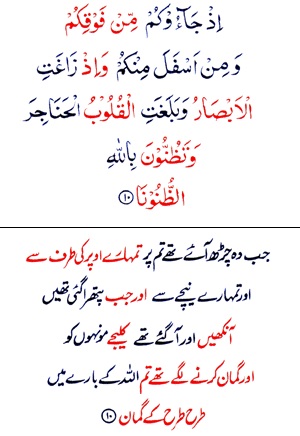 اِذْ جَآءُوْكُمْ مِّنْ فَوْقِكُمْ
وَ مِنْ اَسْفَلَ مِنْكُمْ وَاِذْ زَاغَتِ
الْاَبْصَارُ وَبَلَغَتِ الْقُلُوْبُ الْحَنَاجِرَ
وَتَظُنُّوْنَ بِاللّٰهِ
الظُّنُوْنَا ۝۱۰
جب وہ چڑھ آئے تھے تم پر تمہارے اوپر کی طرف سے
اور تمہارے نیچے سے اور جب پتھرا گئی تھیں
آنکھیں اور آگئے تھے کلیجے مونہوں کو
اور گمان کرنے لگے تھے تم اللہ کے بارے میں
طرح طرح کے گمان ۝۱۰